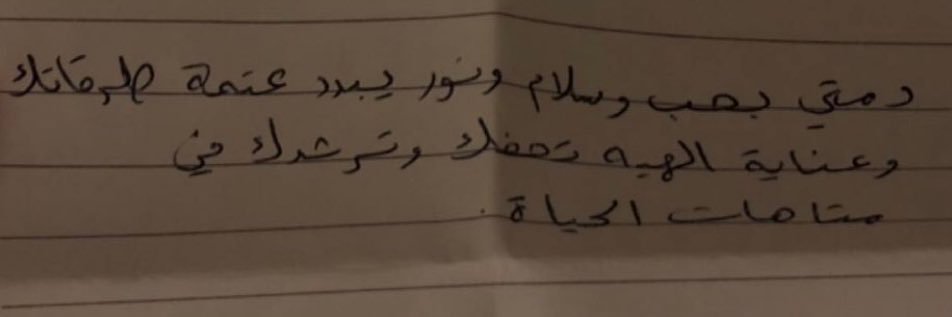 دمتي بحب وسلام ونور يبدد عتمة طرقاتك
وعناية الهيه تحفك وترشدك في
متاهات الحياة.